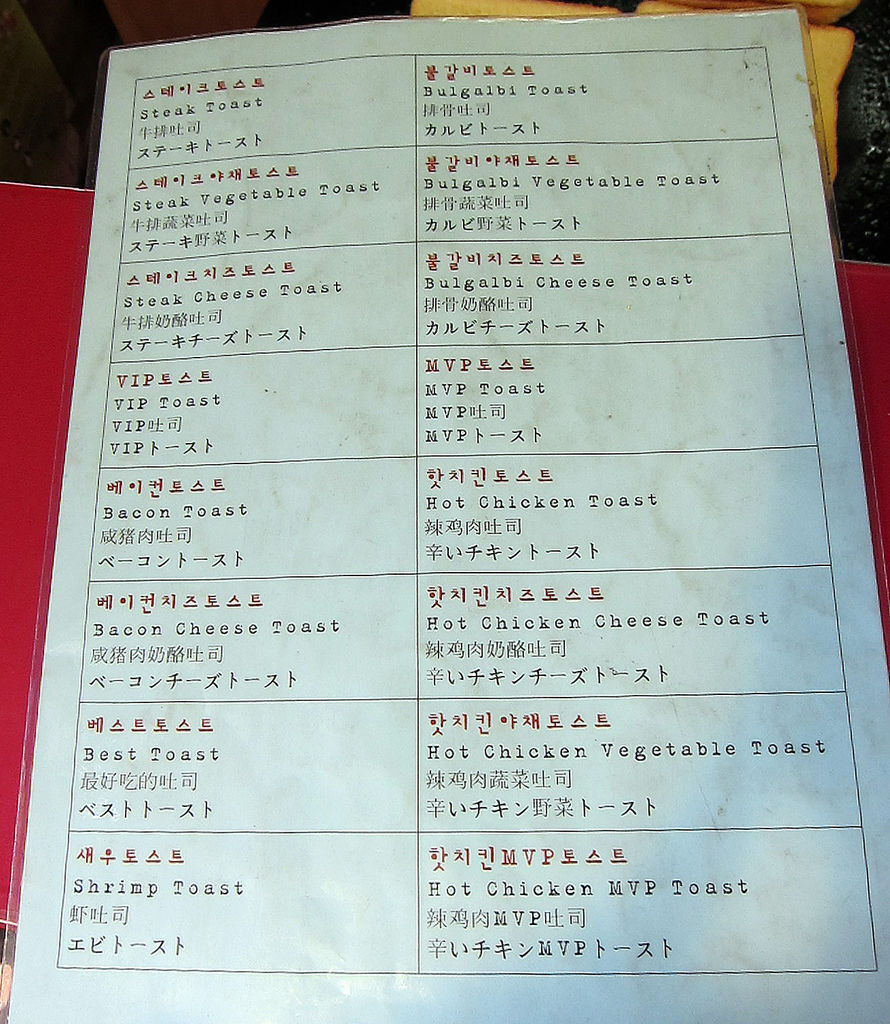 스테이크토스트
Steak Toast
牛排吐司
ステーキトースト
스테이크야채토스트
Steak Vegetable Toast
牛排蔬菜吐司
ステーキ野菜トースト
스테이크치즈토스트
Steak Cheese Toast
牛排奶酪吐司
ステーキチーズトースト
VIP토스트
VIP Toast
VIP吐司
VIPトースト
베이컨토스트
Bacon Toast
咸猪肉吐司
ベーコントースト
베이컨치즈토스트
Bacon Cheese Toast
咸猪肉奶酪吐司
ベーコンチーズトースト
베스트토스트
Best Toast
最好吃的吐司
ベストトースト
새우토스트
Shrimp Toast
虾吐司
エビトースト
불갈비토스트
Bulgalbi Toast
排骨吐司
カルビトースト
불갈비야채토스트
Bulgalbi Vegetable Toast
排骨蔬菜吐司
カルビ野菜トースト
불갈비치즈토스트
Bulgalbi Cheese Toast
排骨奶酪吐司
カルビチーズトースト
MVP토스트
MVP Toast
MVP吐司
MVPトースト
핫치킨토스트
Hot Chicken Toast
辣鸡肉吐司
辛いチキントースト
핫치킨치즈토스트
Hot Chicken Cheese Toast
辣鸡肉奶酪吐司
辛いチキンチーズトースト
핫치킨야채토스트
Hot Chicken Vegetable Toast
辣鸡肉蔬菜吐司
辛いチキン野菜トースト
핫치킨MVP토스트
Hot Chicken MVP Toast
辣鸡肉MVP吐司
辛いチキンMVPトースト